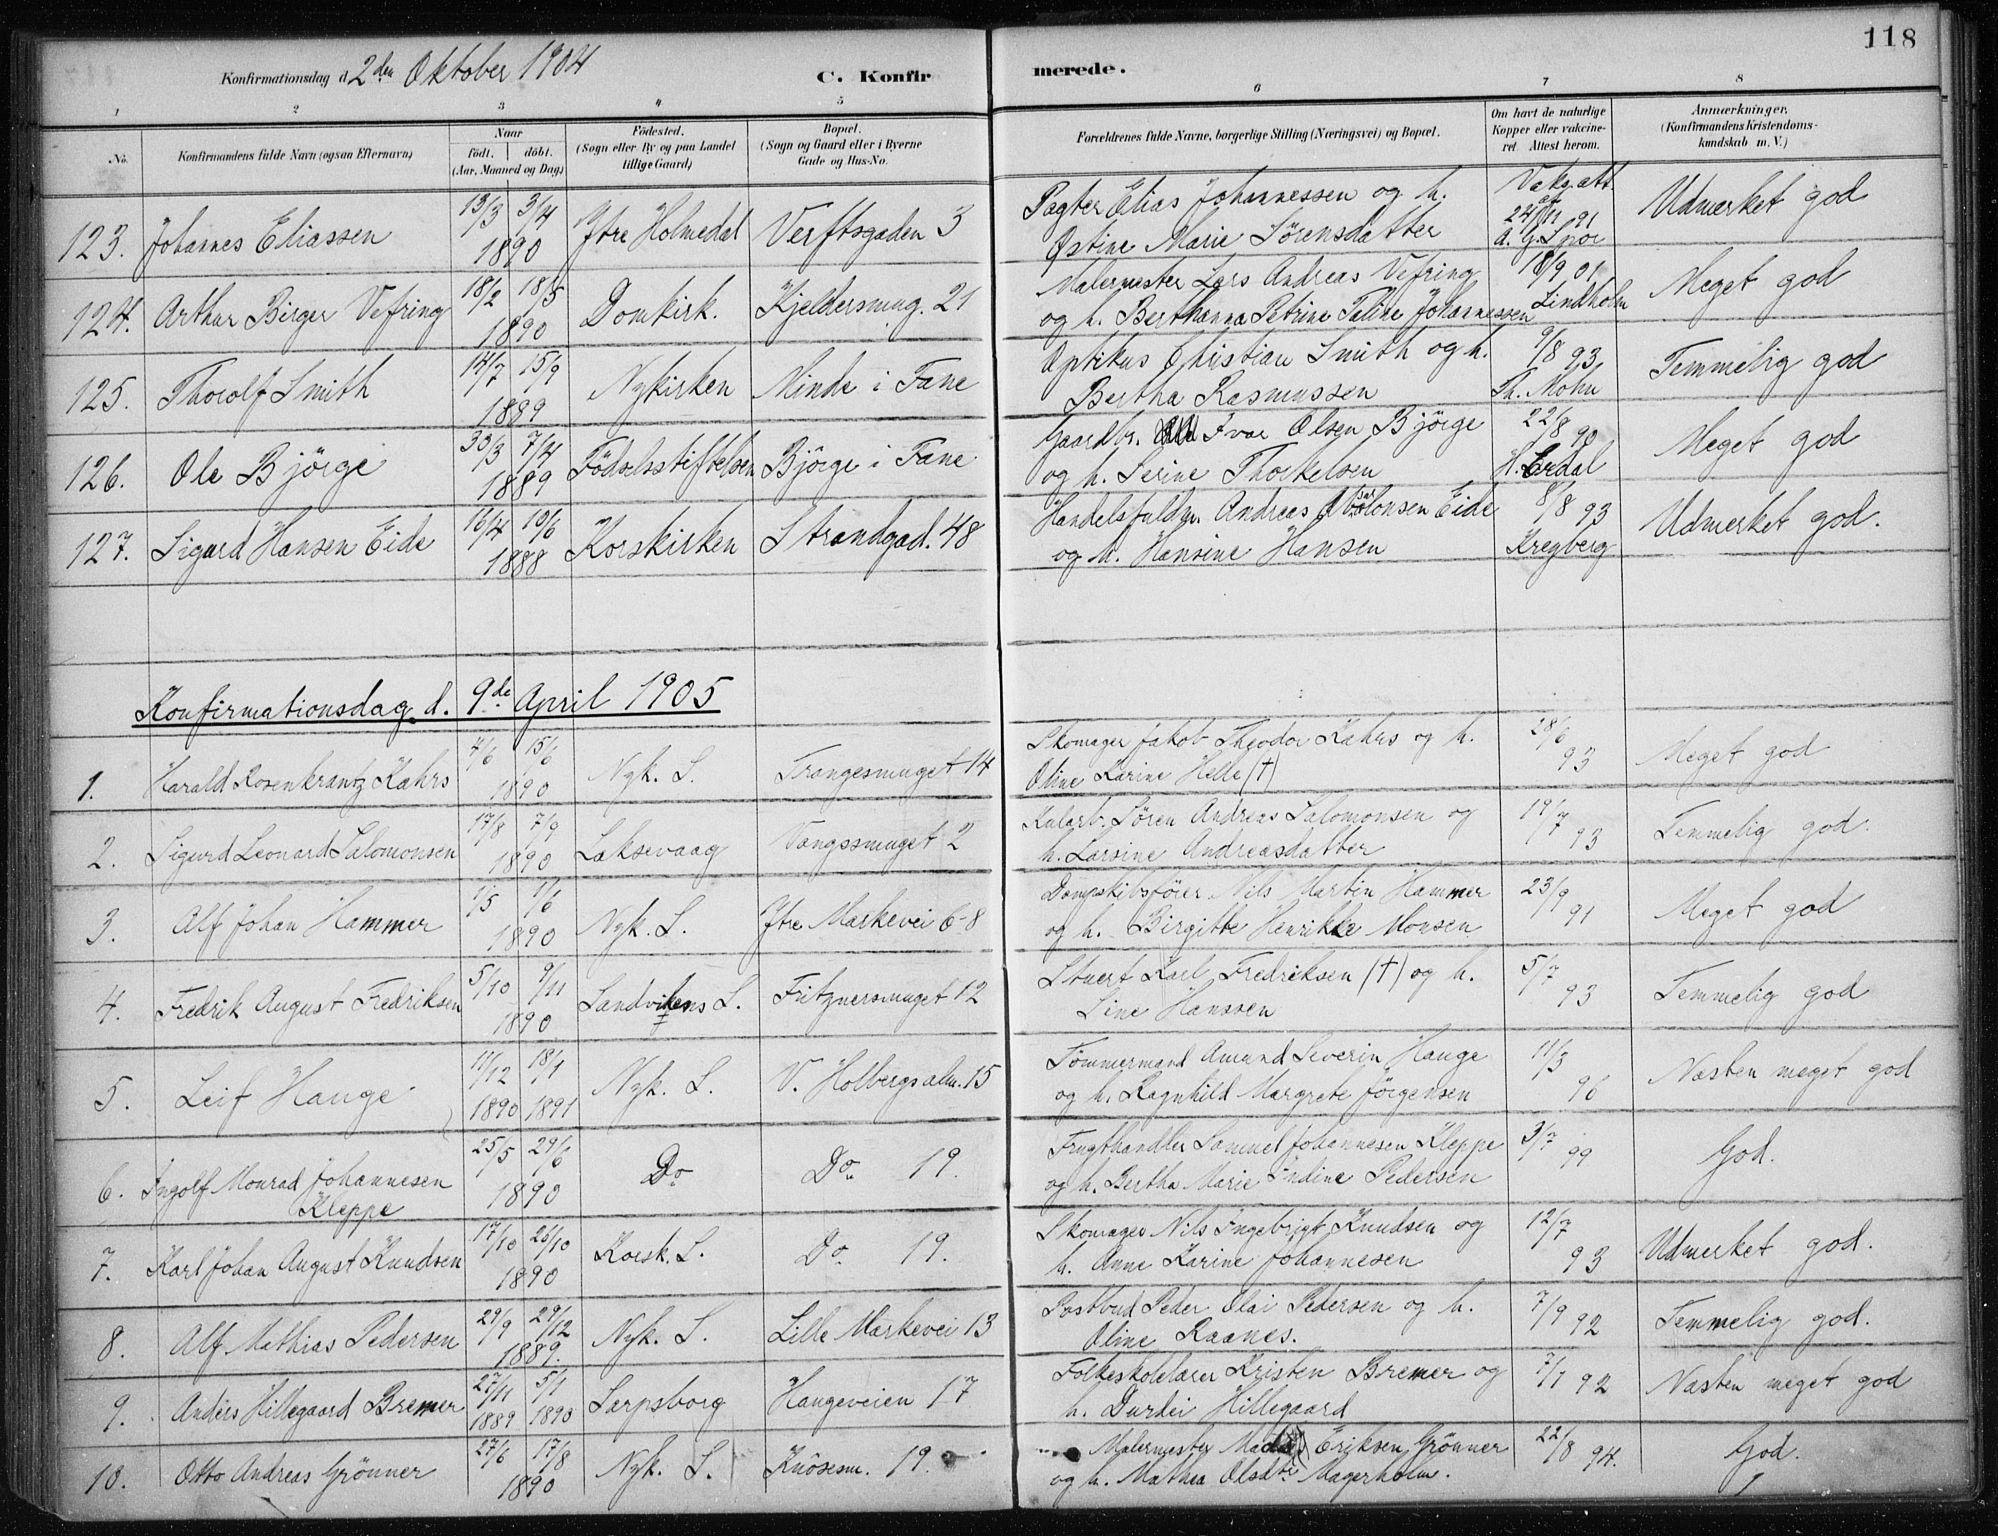 118
Konfirmationsdag d. 2den Oktober 1904
C. Konfirmerede.
1 2 3 4 5 6 7 8
No. | Konfirmandens fulde Navn (ogsaa Efternavn) | Naar født. døbt. (Aar, Maaned og Dag) | Födested. (Sogn eller By og paa Landet tillige Gaard) | Bopæl. (Sogn og Gaard eller i Byerne Gade og Hus-No. | Forældrenes fulde Navne, borgerlige Stilling (Næringsvei) og Bopæl. | Om havt de naturlige Kopper eller vakcineret. Attest herom. | Anmærkninger. (Konfirmandens Kristendomskundskab m. V.)
123. Johannes Eliassen | 13/3 3/4 1890 | Ytre Holmedal | Verftsgaden 3 | Pagter Elias Johannessen og h. Østine Marie Sörensdatter | Vakz. att. 24/11 91 | Udmerket god
124. Arthur Birger Vefring | 18/2 18/5 1890 | Domkirk. | Kjeldersmug. 21 | Malermester Lars Andreas Vefring og h. Berthanna Petrine Taline Johannessen | 18/9 01 Lindholm | Meget god
125. Thorolf Smith | 14/7 15/9 1889 | Nykirken | Minde i Fane | Optikus Christian Smith og h. Bertha Rasmussen | 9/8 93 Th. Mohn | Temmelig god
126. Ole Bjørge | 30/3 7/4 1889 | Födselsstiftelsen | Bjørge i Fane | Gaardbr. Ivar Olsen Bjørge og h. Serine Thorkelsen | 22/8 90 H. Erdal | Meget god
127. Sigurd Hansen Eide | 16/4 10/6 1888 | Korskirken | Strandgad. 48 | Handelsfuldm. Andreas Absalonsen Eide og h. Hansine Hansen | 8/8 93 Kregberg | Udmerket god.
Konfirmationsdag d. 9de April 1905
1. Harald Rosenkrantz Kahrs | 4/6 15/6 1890 | Nyk. S. | Trangesmuget 14 | Skomager Jakob Theodor Kahrs og h. Oline Karine Helle (†) | 28/6 93 | Meget god
2. Sigurd Leonard Salomonsen | 17/8 7/9 1890 | Laksevaag | Vangssmuget 2 | Kularb. Sören Andreas Salomonsen og h. Larsine Andreasdatter | 19/7 93 | Temmelig god.
3. Alf Johan Hammer | 1/5 1/6 1890 | Nyk. S. | Ytre Markevei 6-8 | Dampskibsfører Nils Martin Hammer og h. Birgitte Henrikke Monsen | 23/9 91 | Meget god
4. Fredrik August Fredriksen | 5/10 9/11 1890 | Sandvikens S. | Fritznersmuget 12 | Stuert Karl Fredriksen (†) og h. Sine Hanssen | 5/7 93 | Temmelig god
5. Leif Hauge | 11/12 1890 18/1 1891 | Nyk. S. | V. Holbergsalm. 15 | Tömmermand Amund Severin Hauge og h. Ragnhild Margrete Jörgensen | 11/3 96 | Næsten meget god
6. Ingolf Monrad Johannesen Kleppe | 25/5 29/6 1890 | Do | Do 19. | Frugthandler Sammel Johannesen Kleppe og h. Bertha Marie Indine Pedersen | 3/7 99 | God.
7. Karl Johan August Knudsen | 17/10 26/10 1890 | Korsk. S. | Do 19. | Skomager Nils Ingebrigt Knudsen og h. Anne Karine Johannesen | 12/7 93 | Udmerket god.
8. Alf Mathias Pedersen | 29/9 29/12 1889. | Nyk. S. | Lille Markevei 13 | Postbud Peder Olai Pedersen og h. Oline Raanes. | 7/9 92 | Temmelig god.
9. Anders Hillegaard Bremer | 27/11 1889 5/1 1890 | Sarpsborg | Haugeveien 17 | Folkeskolelærer Kristen Bremer og h. Durdei Hillegaard | 7/7 92 | Næsten meget god
10. Otto Andreas Grönner | 27/6 17/8 1890 | Nyk. S. | Knösesm. 19. | Malermester Eriksen Grönner og h. Mathea Olsdtr. Magerholm. | 22/8 94. | God.